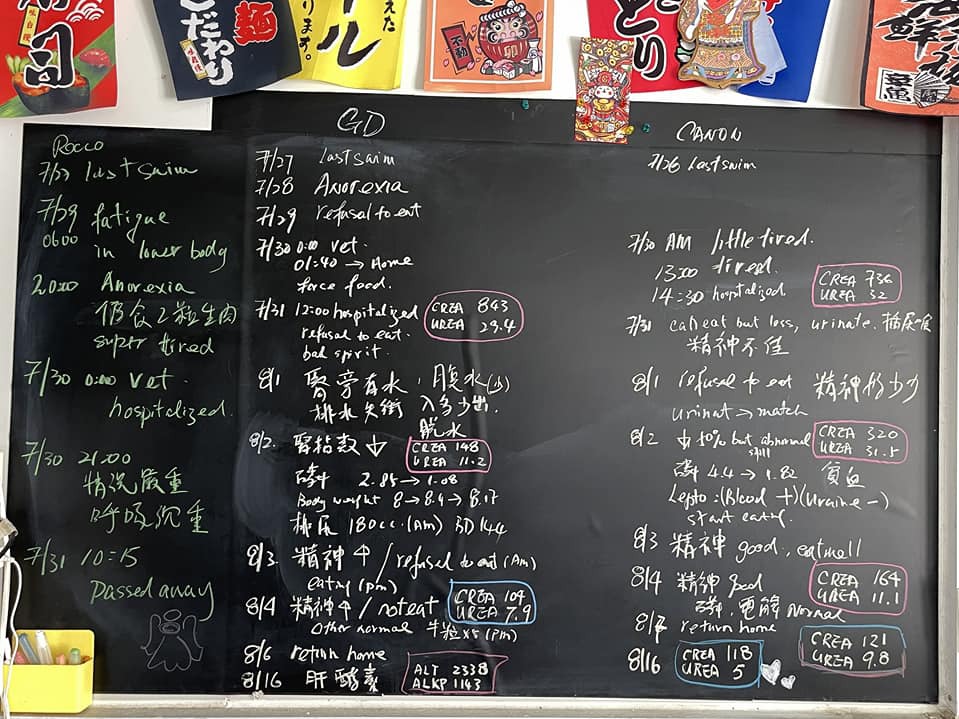 司
こだわり
麺
ります。
ル
えた
不動
卯
とり
海鮮
章魚
Rocco
7/27 last swim
7/29 fatigue
0600 in lower body
20:00 Anorexia
仍食2粒生肉
super tired
7/30 0:00 vet.
hospitalized.
7/30 21:00
情況嚴重
呼吸沉重
7/31 10:15
passed away
GD
7/27 last swim
7/28 Anorexia
7/29 refusal to eat
7/30 0:00 vet.
01:40 → Home
force food.
7/31 12:00 hospitalized
refusal to eat.
bad spirit.
CREA 843
UREA 29.4
8/1 腎旁有水, 腹水(少)
排水失衡 入多少出.
脫水
8/2. 腎指数 ↓
CREA 148
UREA 11.2
磷 2.85 → 1.08
Body weight 8 → 8.4 → 8.17
排尿 180cc. (Am)
8/3. 精神 ↑ / refused to eat (Am)
eating (pm)
8/4 精神 ↑ / not eat
other normal 牛粒x5 (pm)
CREA 104
UREA 7.9
8/6 return home
8/16 肝酵素
ALT 2338
ALKP 1143
CANON
7/26 Last swim
7/30 AM little tired.
13:00 tired.
14:30 hospitalized
CREA 736
UREA 32
7/31 can eat but loss, urinate.
精神不佳
8/1 refusal to eat 精神
urinat → match
8/2 ↓ 50% but abnormal
still
CREA 320
UREA 31.5
磷 4.4 → 1.82 貧血
Lepto: (Blood +) (Uraine -)
start eating.
8/3 精神 good, eat well
8/4 精神 good
磷, 電解 normal
CREA 164
UREA 11.1
8/7 return home
CREA 121
UREA 9.8
8/16
CREA 118
UREA 5